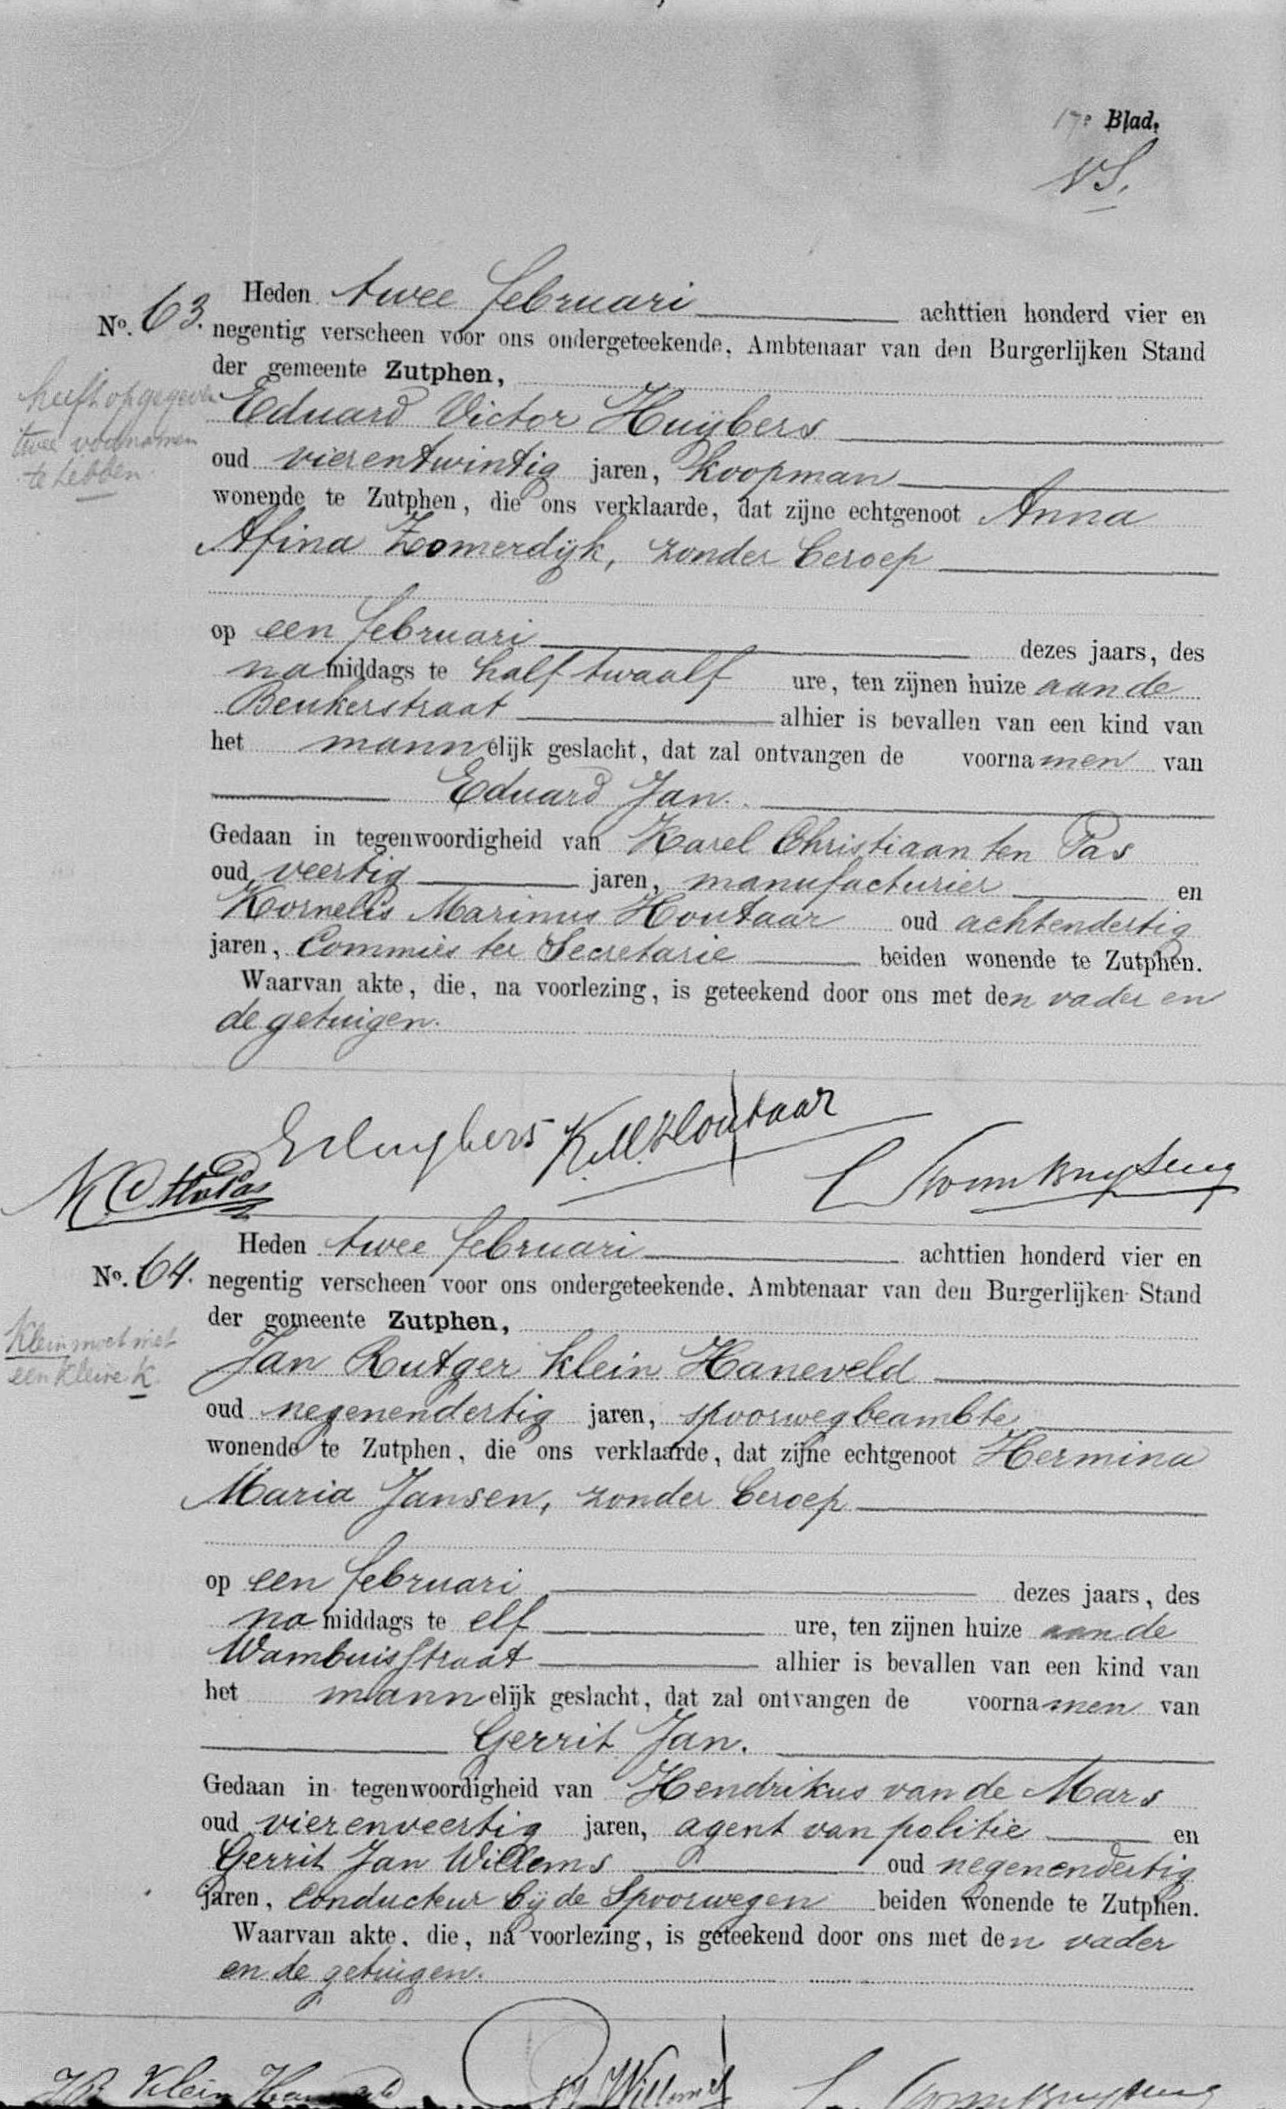 17e Blad.
VS.
Heden twee februari achttien honderd vier en
No. 63. negentig verscheen voor ons ondergeteekende, Ambtenaar van den Burgerlijken Stand
der gemeente Zutphen,
heeft opgegeven
twee voornamen
te hebben.
Eduard Victor Huijbers
oud vierentwintig jaren, koopman
wonende te Zutphen, die ons verklaarde, dat zijne echtgenoot Anna
Afina Zomerdijk, zonder beroep
op een februari dezes jaars, des
na middags te half twaalf ure, ten zijnen huize aan de
Beukerstraat alhier is bevallen van een kind van
het mannelijk geslacht, dat zal ontvangen de voornamen van
Eduard Jan.
Gedaan in tegenwoordigheid van Karel Christiaan ten Pas
oud veertig jaren, manufacturier en
Kornelis Marinus Houtaar oud achtendertig
jaren, Commies ter Secretarie beiden wonende te Zutphen.
Waarvan akte, die, na voorlezing, is geteekend door ons met den vader en
de getuigen.
EVHuybers K.M. Houtaar
K C ten Pas
Heden twee februari achttien honderd vier en
No. 64. negentig verscheen voor ons ondergeteekende, Ambtenaar van den Burgerlijken Stand
der gemeente Zutphen,
Klein moet met
een kleine k.
Jan Rutger klein Haneveld
oud negenendertig jaren, spoorwegbeambte
wonende te Zutphen, die ons verklaarde, dat zijne echtgenoot Hermina
Maria Jansen, zonder beroep
op een februari dezes jaars, des
na middags te elf ure, ten zijnen huize aan de
Wambuisstraat alhier is bevallen van een kind van
het mannelijk geslacht, dat zal ontvangen de voornamen van
Gerrit Jan.
Gedaan in tegenwoordigheid van Hendrikus van de Mars
oud vierenveertig jaren, agent van politie en
Gerrit Jan Willems oud negenendertig
jaren, conducteur bij de Spoorwegen beiden wonende te Zutphen.
Waarvan akte, die, na voorlezing, is geteekend door ons met den vader
en de getuigen.
JR Klein Haneveld GJ Willems